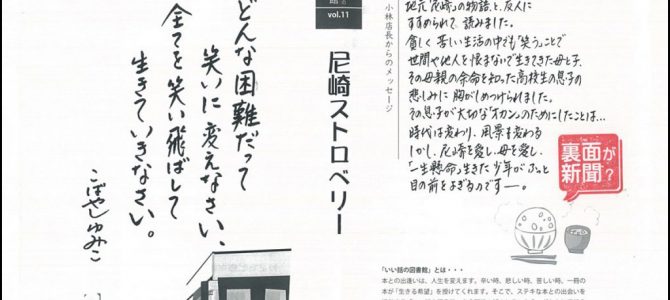 小林店長からのメッセージ
地元「尼崎」の物語と、友人に
すすめられて、読みました。
貧しく苦しい生活の中でも「笑う」ことで
世間や他人を恨まないで生きてきた母と子。
その母親の余命を知った高校生の息子の
悲しみに胸がしめつけられました。
その息子が大切な「オカン」のためにしたことは…
時代は変わり、風景も変わる
しかし、尼崎を愛し、母を愛し、
「一生懸命」生きた少年が、ふっと
目の前をよぎるのです―。
裏面が
新聞?
館
vol.11
尼崎ストロベリー
どんな困難だって
笑いに変えなさい、
全てを笑い飛ばして
生きていきなさい。
こばやしゆみこ
「いい話の図書館」とは・・・
本との出逢いは、人生を変えます。辛い時、悲しい時、苦しい時、一冊の
本が「生きる希望」を授けてくれます。そこで、ステキな本との出会いを